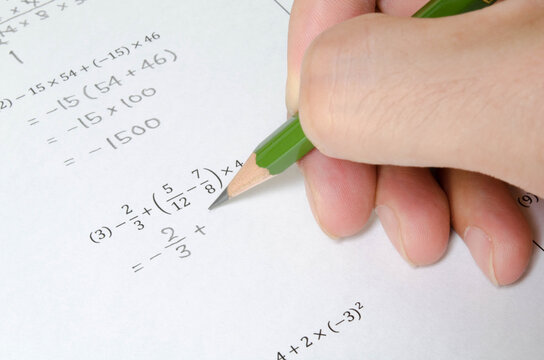 1
2) −15×54+(−15)×46
= −15(54+46)
= −15×100
= −1500
(3) −2/3+(5/12−7/8)×4
= −2/3 +
4+2×(−3)²
(9)